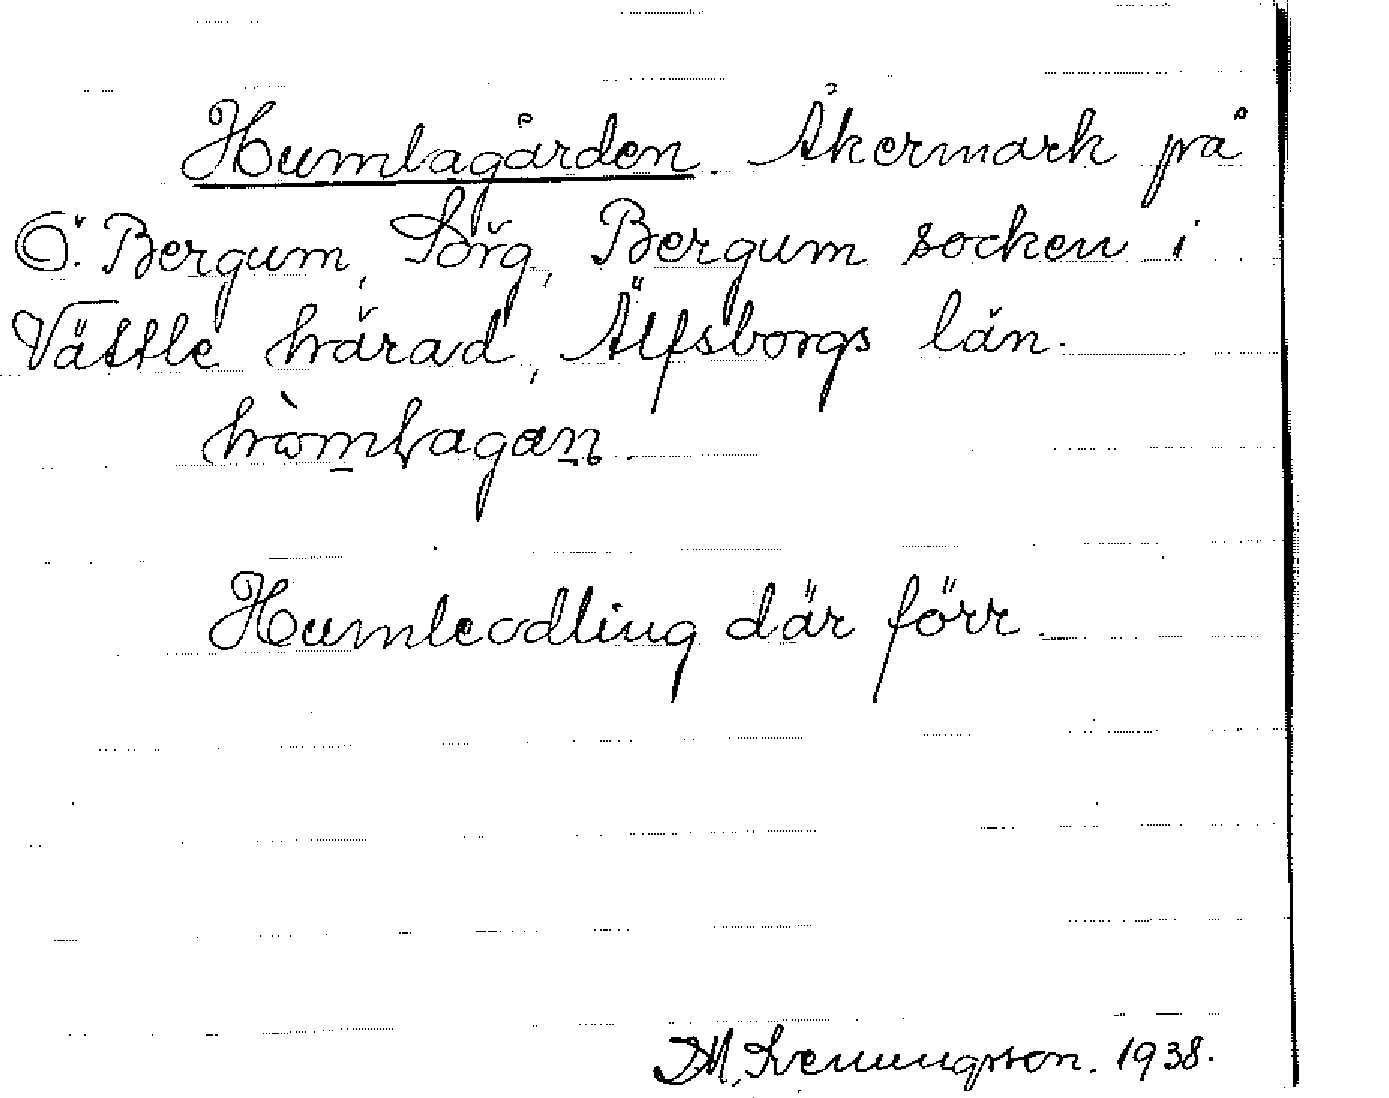 Humlagården. Åkermark på
Ö. Bergum, Sörg, Bergum socken i
Vättle härad, Älfsborgs län.
hòmlagan
Humleodling där förr
D.M. Svenungsson. 1938.